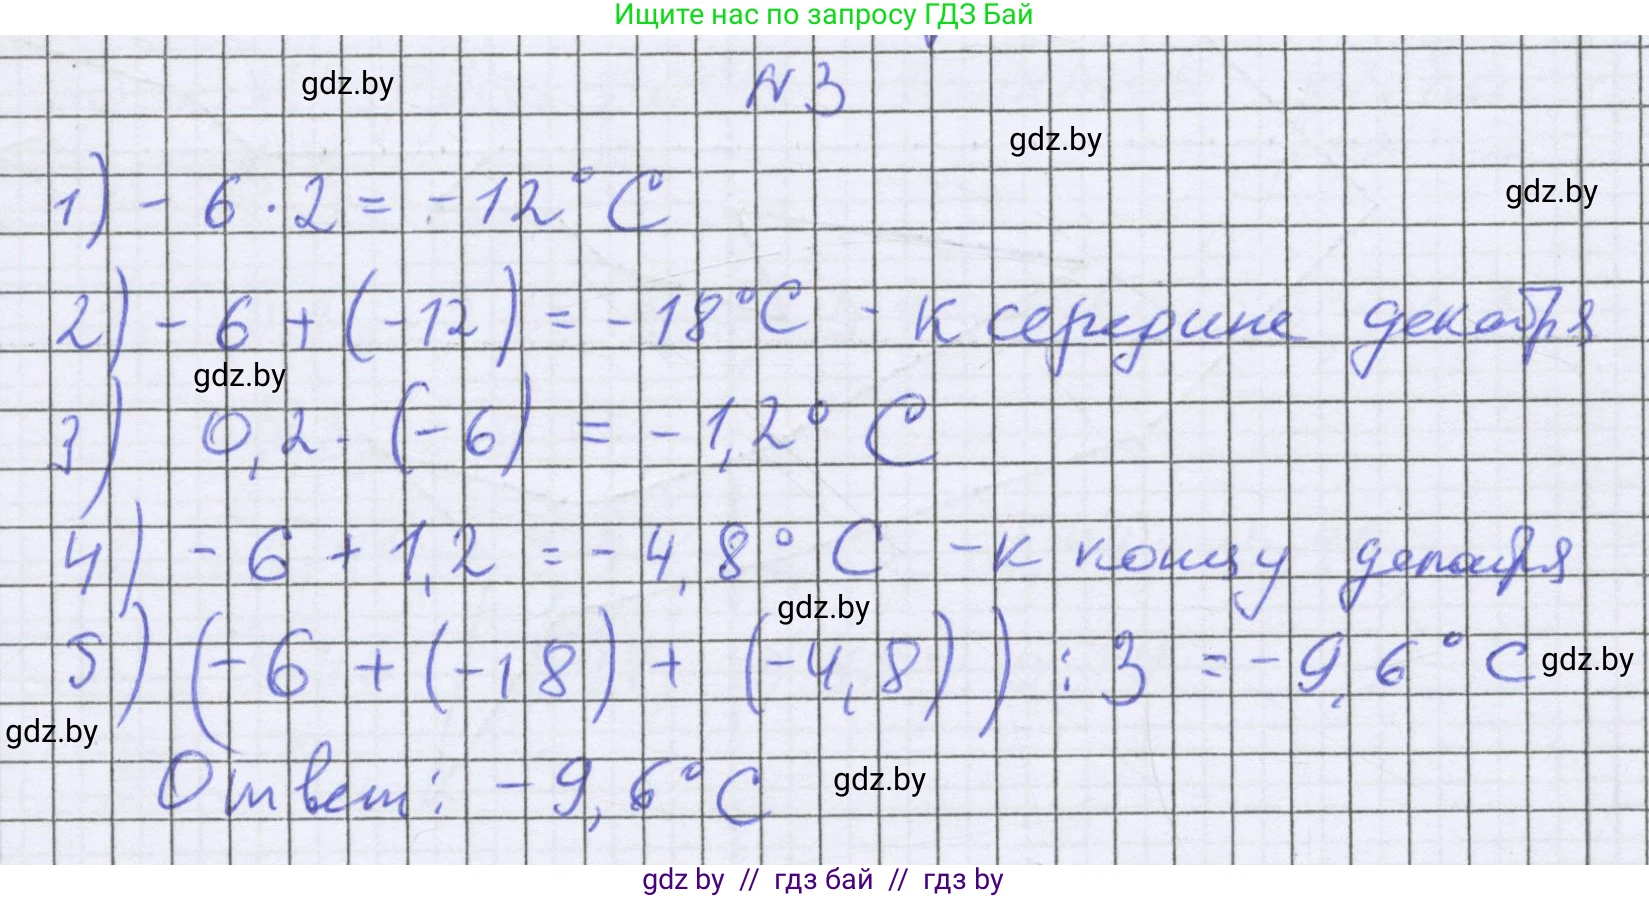 Ищите нас по запросу ГДЗ Бай
gdz.by
N 3
gdz.by
gdz.by
1) - 6 · 2 = -12° C
2) - 6 + (-12) = -18°C - к середине декабря
gdz.by
3) 0,2 · (-6) = -1,2° C
4) - 6 + 1,2 = -4,8° C - к концу декабря
gdz.by
5) (-6 + (-18) + (-4,8)) : 3 = -9,6° C
gdz.by
gdz.by
Ответ: -9,6°C
gdz.by
gdz by // гдз бай // гдз by